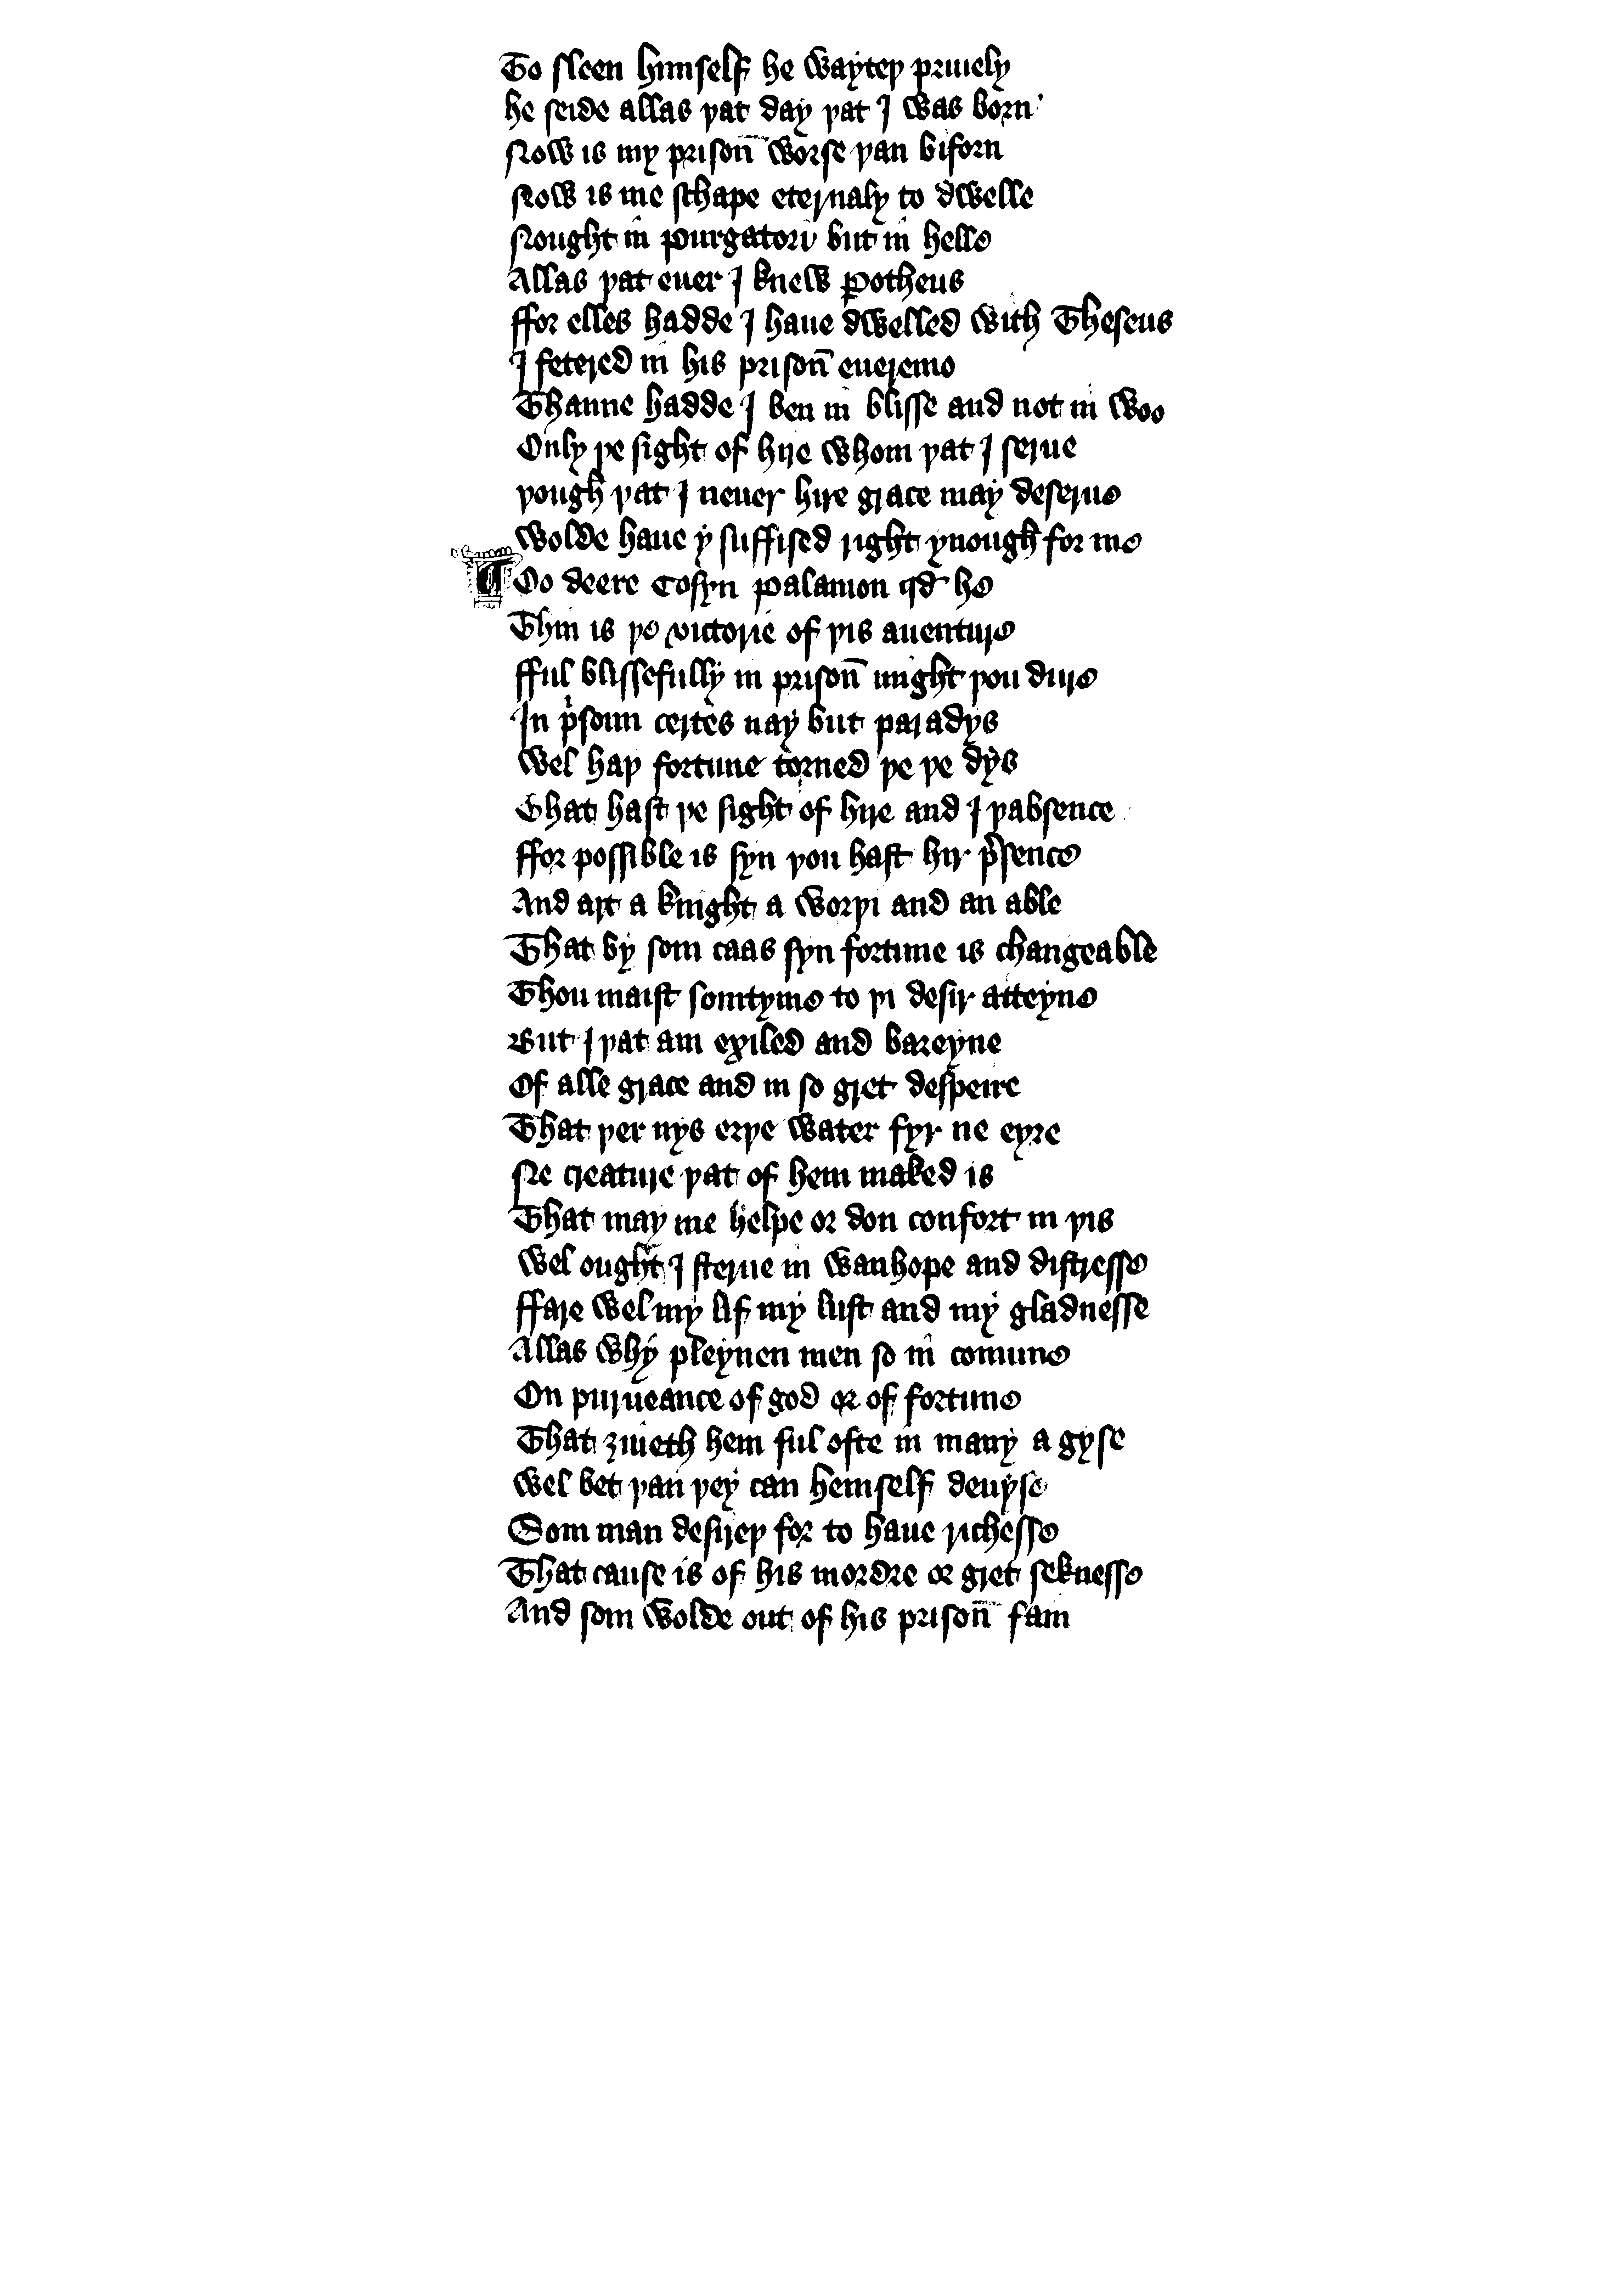 To sleen himself he wayteþ priuely
he seide allas þat day þat I was born
Now is my prison̄ worse þan biforn
Now is me schape eternaly to dwelle
Nought in purgatori but in helle
Allas þat euer I knew Potheus
ffor elles hadde I haue dwelled with Theseus
I fetered in his prison̄ eueremo
Thanne hadde I ben in blisse and not in woo
Only þe sight of hire whom þat I serue
þough þat I neuer hire grace may deserue
wolde haue y suffised right ynough for me
O deere Cosyn Palamon qd he
Thin is þe victorie of þis auenture
fful blissefully in prison̄ might þou dure
In pͥsoun certes nay but paradys
wel haþ fortune torned þe þe dys
That hast þe sight of hire and I þabsence
ffor possible is syn þou hast hir p̉sence
And art a knight a worþi and an able
That by som caas syn fortune is changeable
Thou maist somtyme to þi desir atteyne
But I þat am exiled and bareyne
Of alle grace and in so gret despeire
That þer nys erþe water fyr ne eyre
Ne creature þat of hem maked is
That may me helpe or don confort in þis
wel ought I sterue in wanhope and distresse
ffare wel my lif my lust and my gladnesse
Allas why pleynen men so in comune
On purueance of god or of fortune
That ȝiueth hem ful ofte in many a gyse
wel bet þan þey can hemself deuyse
Som man desireþ for to haue richesse
That cause is of his mordre or gret seknesse
And som wolde out of his prison̄ fain